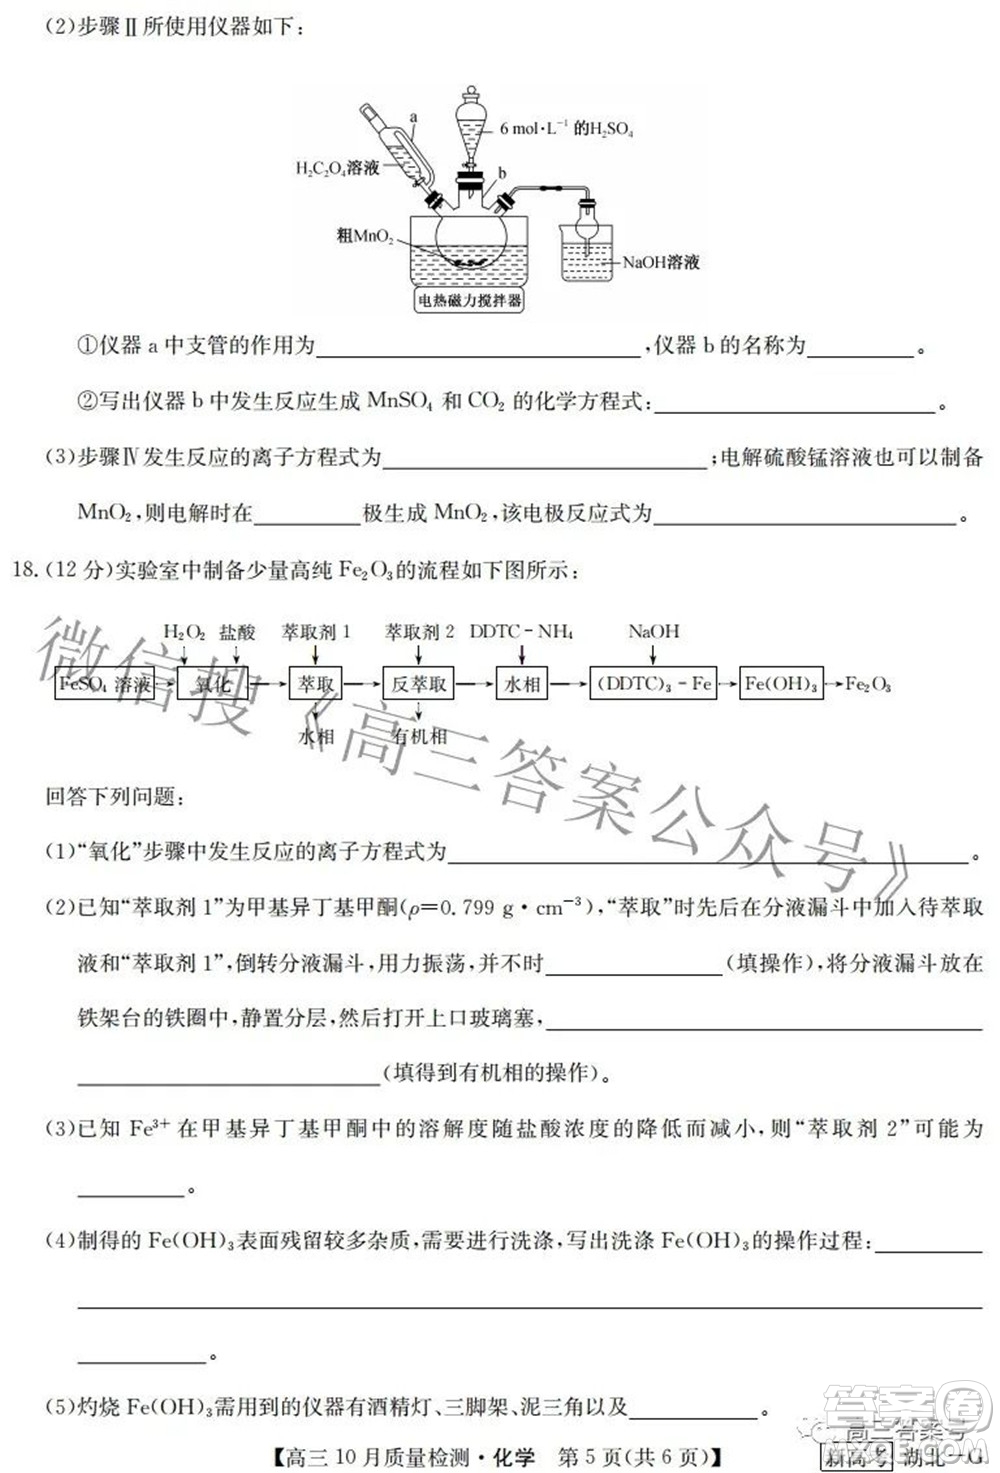 (2)步骤Ⅱ所使用仪器如下:
a
6 mol·L⁻¹的H₂SO₄
H₂C₂O₄溶液
b
粗MnO₂
NaOH溶液
电热磁力搅拌器
①仪器a中支管的作用为________,仪器b的名称为________。
②写出仪器b中发生反应生成MnSO₄和CO₂的化学方程式:________。
(3)步骤Ⅳ发生反应的离子方程式为________;电解硫酸锰溶液也可以制备
MnO₂,则电解时在________极生成MnO₂,该电极反应式为________。
18.(12分)实验室中制备少量高纯Fe₂O₃的流程如下图所示:
H₂O₂ 盐酸 萃取剂1 萃取剂2 DDTC-NH₄ NaOH
FeSO₄溶液 氧化 萃取 反萃取 水相 (DDTC)₃-Fe Fe(OH)₃ Fe₂O₃
水相 有机相
回答下列问题:
(1)“氧化”步骤中发生反应的离子方程式为________。
(2)已知“萃取剂1”为甲基异丁基甲酮(ρ=0.799 g·cm⁻³),“萃取”时先后在分液漏斗中加入待萃取
液和“萃取剂1”,倒转分液漏斗,用力振荡,并不时________(填操作),将分液漏斗放在
铁架台的铁圈中,静置分层,然后打开上口玻璃塞,________
________(填得到有机相的操作)。
(3)已知Fe³⁺在甲基异丁基甲酮中的溶解度随盐酸浓度的降低而减小,则“萃取剂2”可能为
________。
(4)制得的Fe(OH)₃表面残留较多杂质,需要进行洗涤,写出洗涤Fe(OH)₃的操作过程:________
________
________。
(5)灼烧Fe(OH)₃需用到的仪器有酒精灯、三脚架、泥三角以及________。
【高三10月质量检测·化学 第5页(共6页)】
新高考 湖北-G
微信搜《高三答案公众号》
高三答案号
答案圈
MXQE.COM